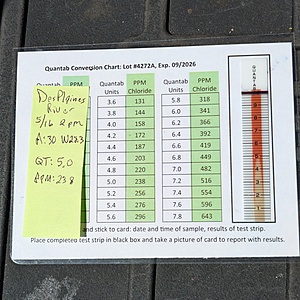 Quantab Conversion Chart: Lot #4272A, Exp. 09/2026
PPM
Quantab Units PPM Chloride Quantab Units PPM Chloride
3.6 131 5.8 318
3.8 144 6.0 341
4.0 158 6.2 366
4.2 172 6.4 392
4.4 187 6.6 419
4.6 203 6.8 449
4.8 220 7.0 482
5.0 238 7.2 516
5.2 256 7.4 554
5.4 276 7.6 596
5.6 296 7.8 643
DesPlaines
River
5/16 2pm
A:30 W223
QT: 5.0
PPM: 238
and stick to card: date and time of sample, results of test strip.
Place completed test strip in black box and take a picture of card to report with results.
QUANTAB